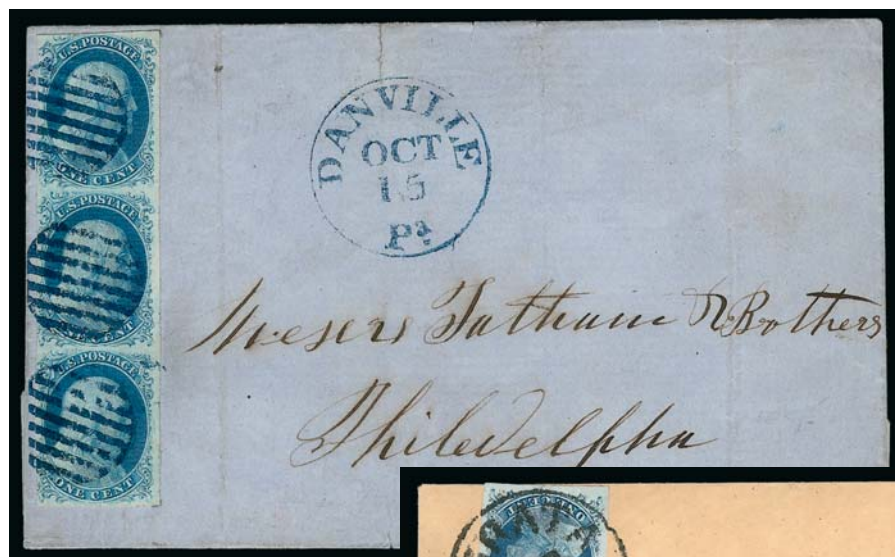 U.S. POSTAGE
ONE CENT
U.S. POSTAGE
U.S. POSTAGE
ONE CENT
DANVILLE
OCT
15
Pa
Messrs Tatham & Brothers
Philadelpha
ONE CENT